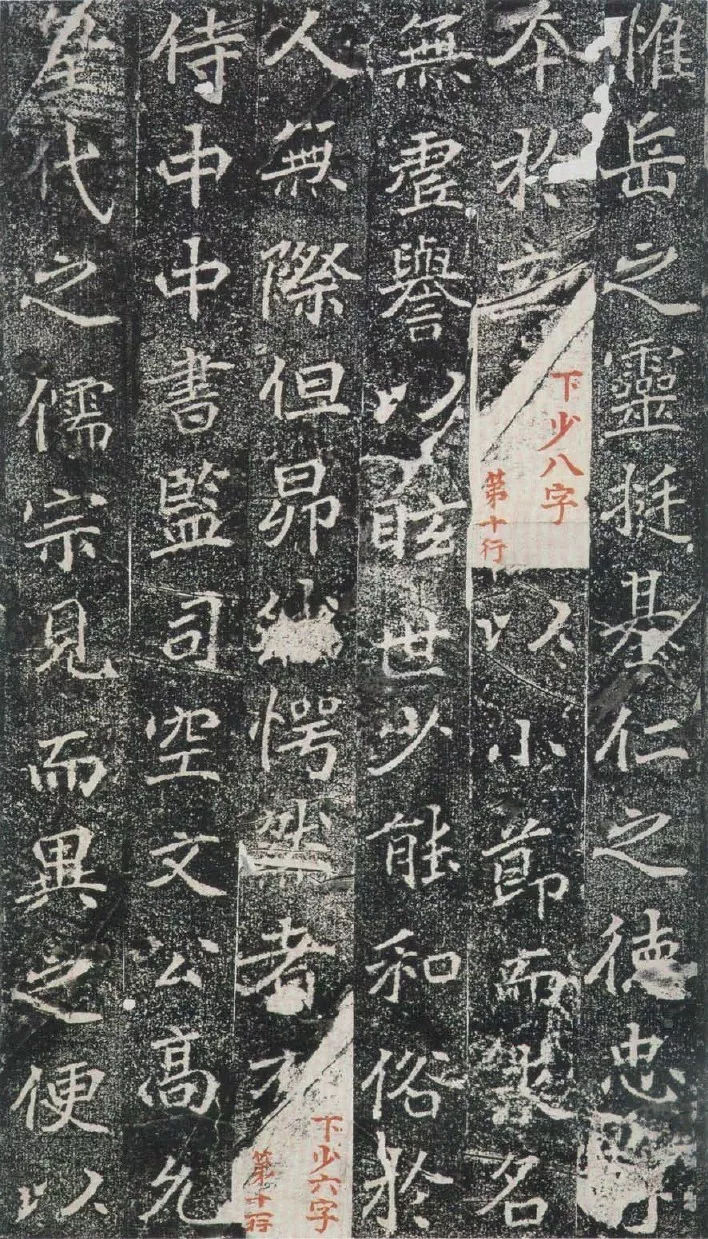 惟岳之靈挺基仁之德忠
夲於立
下少八字
第十行
以小節而求名
無虛譽以眩世少能和俗於
人無際但昂愕然者
下少六字
第十行
侍中中書監司空文公高允
皇代之儒宗見而異之便以